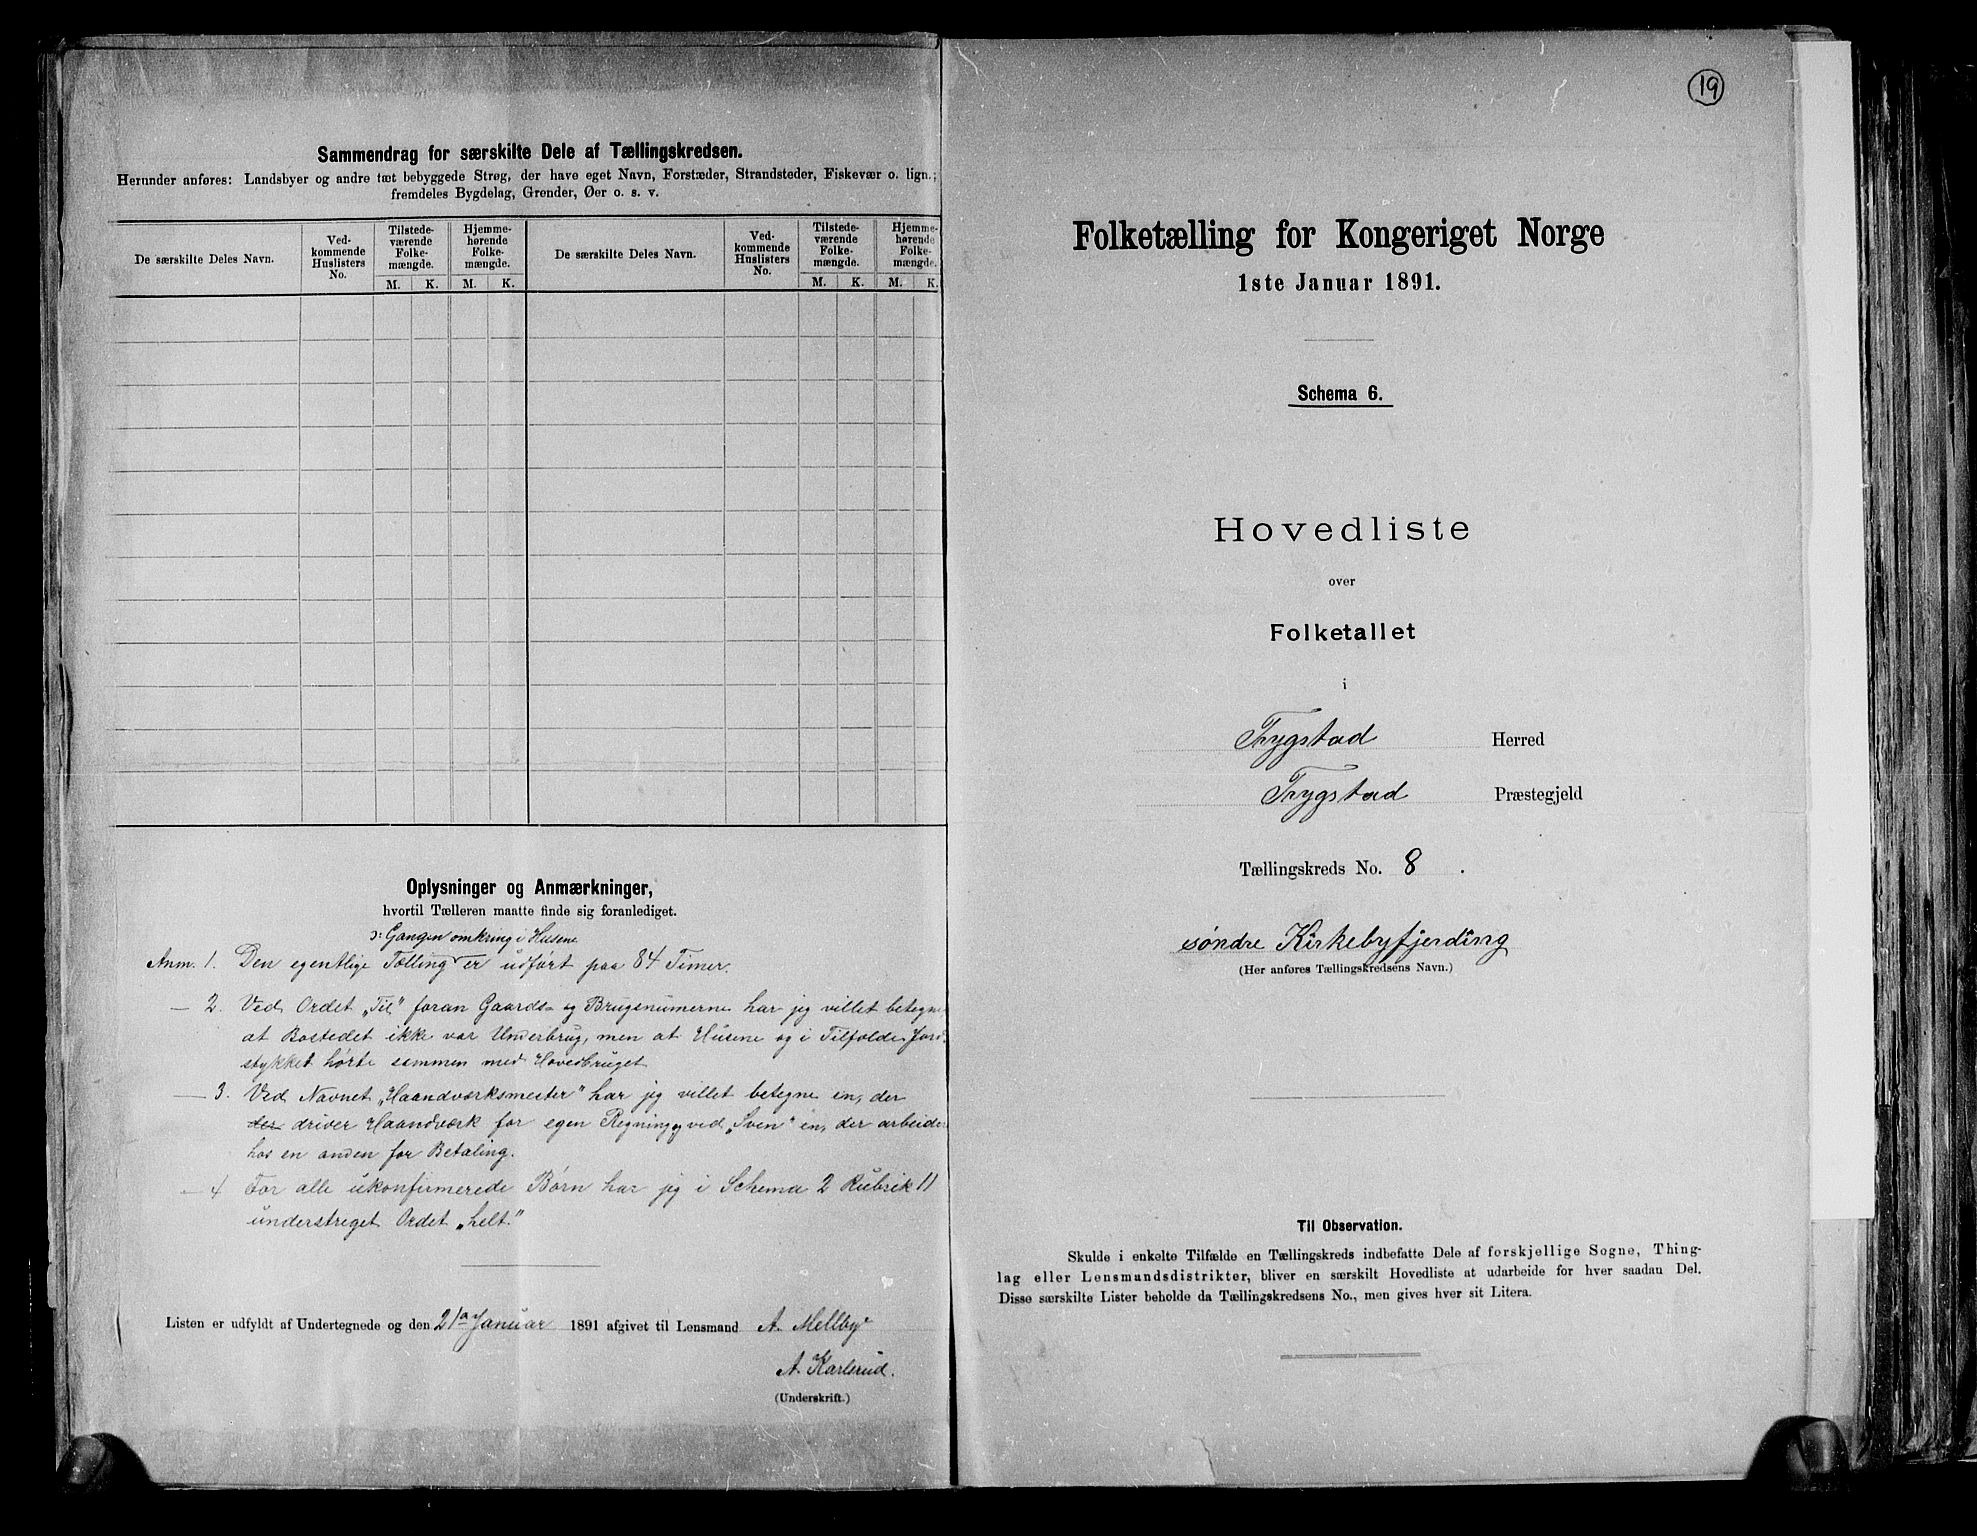 Sammendrag for særskilte Dele af Tællingskredsen.
Herunder anføres: Landsbyer og andre tæt bebyggede Strøg, der have eget Navn, Forstæder, Strandsteder, Fiskevær o. lign.;
fremdeles Bygdelag, Grender, Øer o. s. v.
De særskilte Deles Navn.
Ved-
kommende
Huslisters
No.
Tilstede-
værende
Folke-
mængde.
M. K.
Hjemme-
hørende
Folke-
mængde.
M. K.
De særskilte Deles Navn.
Ved-
kommende
Huslisters
No.
Tilstede-
værende
Folke-
mængde.
M. K.
Hjemme-
hørende
Folke-
mængde.
M. K.
Oplysninger og Anmærkninger,
hvortil Tælleren maatte finde sig foranlediget.
ɔ: Gangen omkring i Husene
Anm. 1. Den egentlige Tælling er udført paa 84 Timer.
— 2. Ved Ordet „Til" foran Gaards- og Brugsnumerne har jeg villet betegne
at Bostedet ikke var Underbrug, men at Husene og i Tilfælde Jord-
stykket hørte sammen med Hovedbruget
— 3. Ved Navnet „Haandværksmester" har jeg villet betegne en, der
der driver Haandværk for egen Regning, ved „Sven" en, der arbeider
hos en anden for Betaling.
— 4 For alle ukonfirmerede Børn har jeg i Schema 2 Rubrik 11
understreget Ordet „helt."
Listen er udfyldt af Undertegnede og den 21a Januar 1891 afgivet til Lensmand A. Mellby
A. Karlsrud.
(Underskrift.)
19
Folketælling for Kongeriget Norge
1ste Januar 1891.
Schema 6.
Hovedliste
over
Folketallet
i
Trygstad Herred
Trygstad Præstegjeld
Tællingskreds No. 8.
søndre Kirkebyfjerding
(Her anføres Tællingskredsens Navn.)
Til Observation.
Skulde i enkelte Tilfælde en Tællingskreds indbefatte Dele af forskjellige Sogne, Thing-
lag eller Lensmandsdistrikter, bliver en særskilt Hovedliste at udarbeide for hver saadan Del.
Disse særskilte Lister beholde da Tællingskredsens No., men gives hver sit Litera.